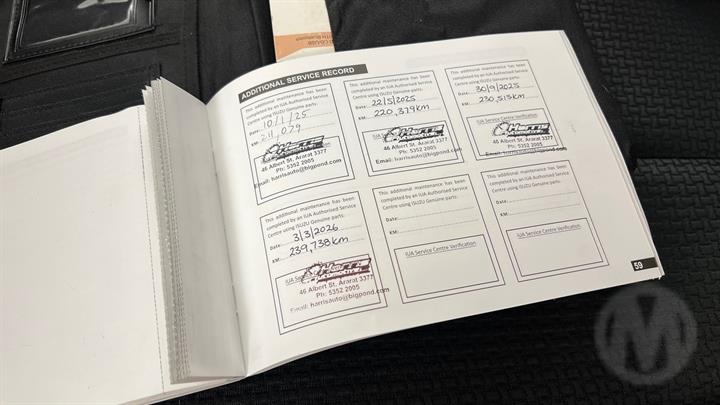 ADDITIONAL SERVICE RECORD
This additional maintenance has been
completed by an IUA Authorised Service
Centre using ISUZU Genuine parts.
Date: 10/1/25
KM: 211,079
Harris
Automotive
46 Albert St, Ararat 3377
Ph: 5352 2005
Email: harrisauto@bigpond.com
This additional maintenance has been
completed by an IUA Authorised Service
Centre using ISUZU Genuine parts.
Date: 22/5/2025
KM: 220,379km
Harris
Automotive
46 Albert St, Ararat 3377
Ph: 5352 2005
Email: harrisauto@bigpond.com
This additional maintenance has been
completed by an IUA Authorised Service
Centre using ISUZU Genuine parts.
Date: 30/9/2025
KM: 230,515km
IUA Service Centre Verification
Harris
Automotive
46 Albert St, Ararat 3377
Ph: 5352 2005
Email: harrisauto@bigpond.com
This additional maintenance has been
completed by an IUA Authorised Service
Centre using ISUZU Genuine parts.
Date: 3/3/2026
KM: 239,738km
IUA Se
Harris
Automotive
46 Albert St, Ararat 3377
Ph: 5352 2005
Email: harrisauto@bigpond.com
This additional maintenance has been
completed by an IUA Authorised Service
Centre using ISUZU Genuine parts.
Date:
KM:
IUA Service Centre Verification
This additional maintenance has been
completed by an IUA Authorised Service
Centre using ISUZU Genuine parts.
Date:
KM:
IUA Service Centre Verification
59
M